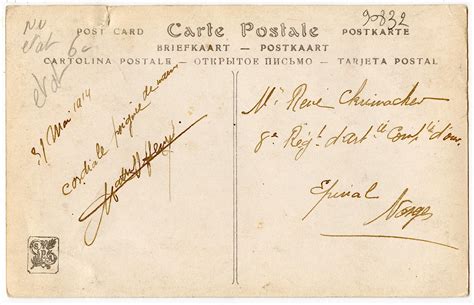 Nu
etat 6c
etat
90832
POST CARD Carte Postale POSTKARTE
BRIEFKAART - POSTKAART
CARTOLINA POSTALE - ОТКРЫТОЕ ПИСЬМО - TARJETA POSTAL
31 Mai 1914
cordiale poignée de main
Mr René Chrimacher
8e Régt d'artie
Epinal
Vosges